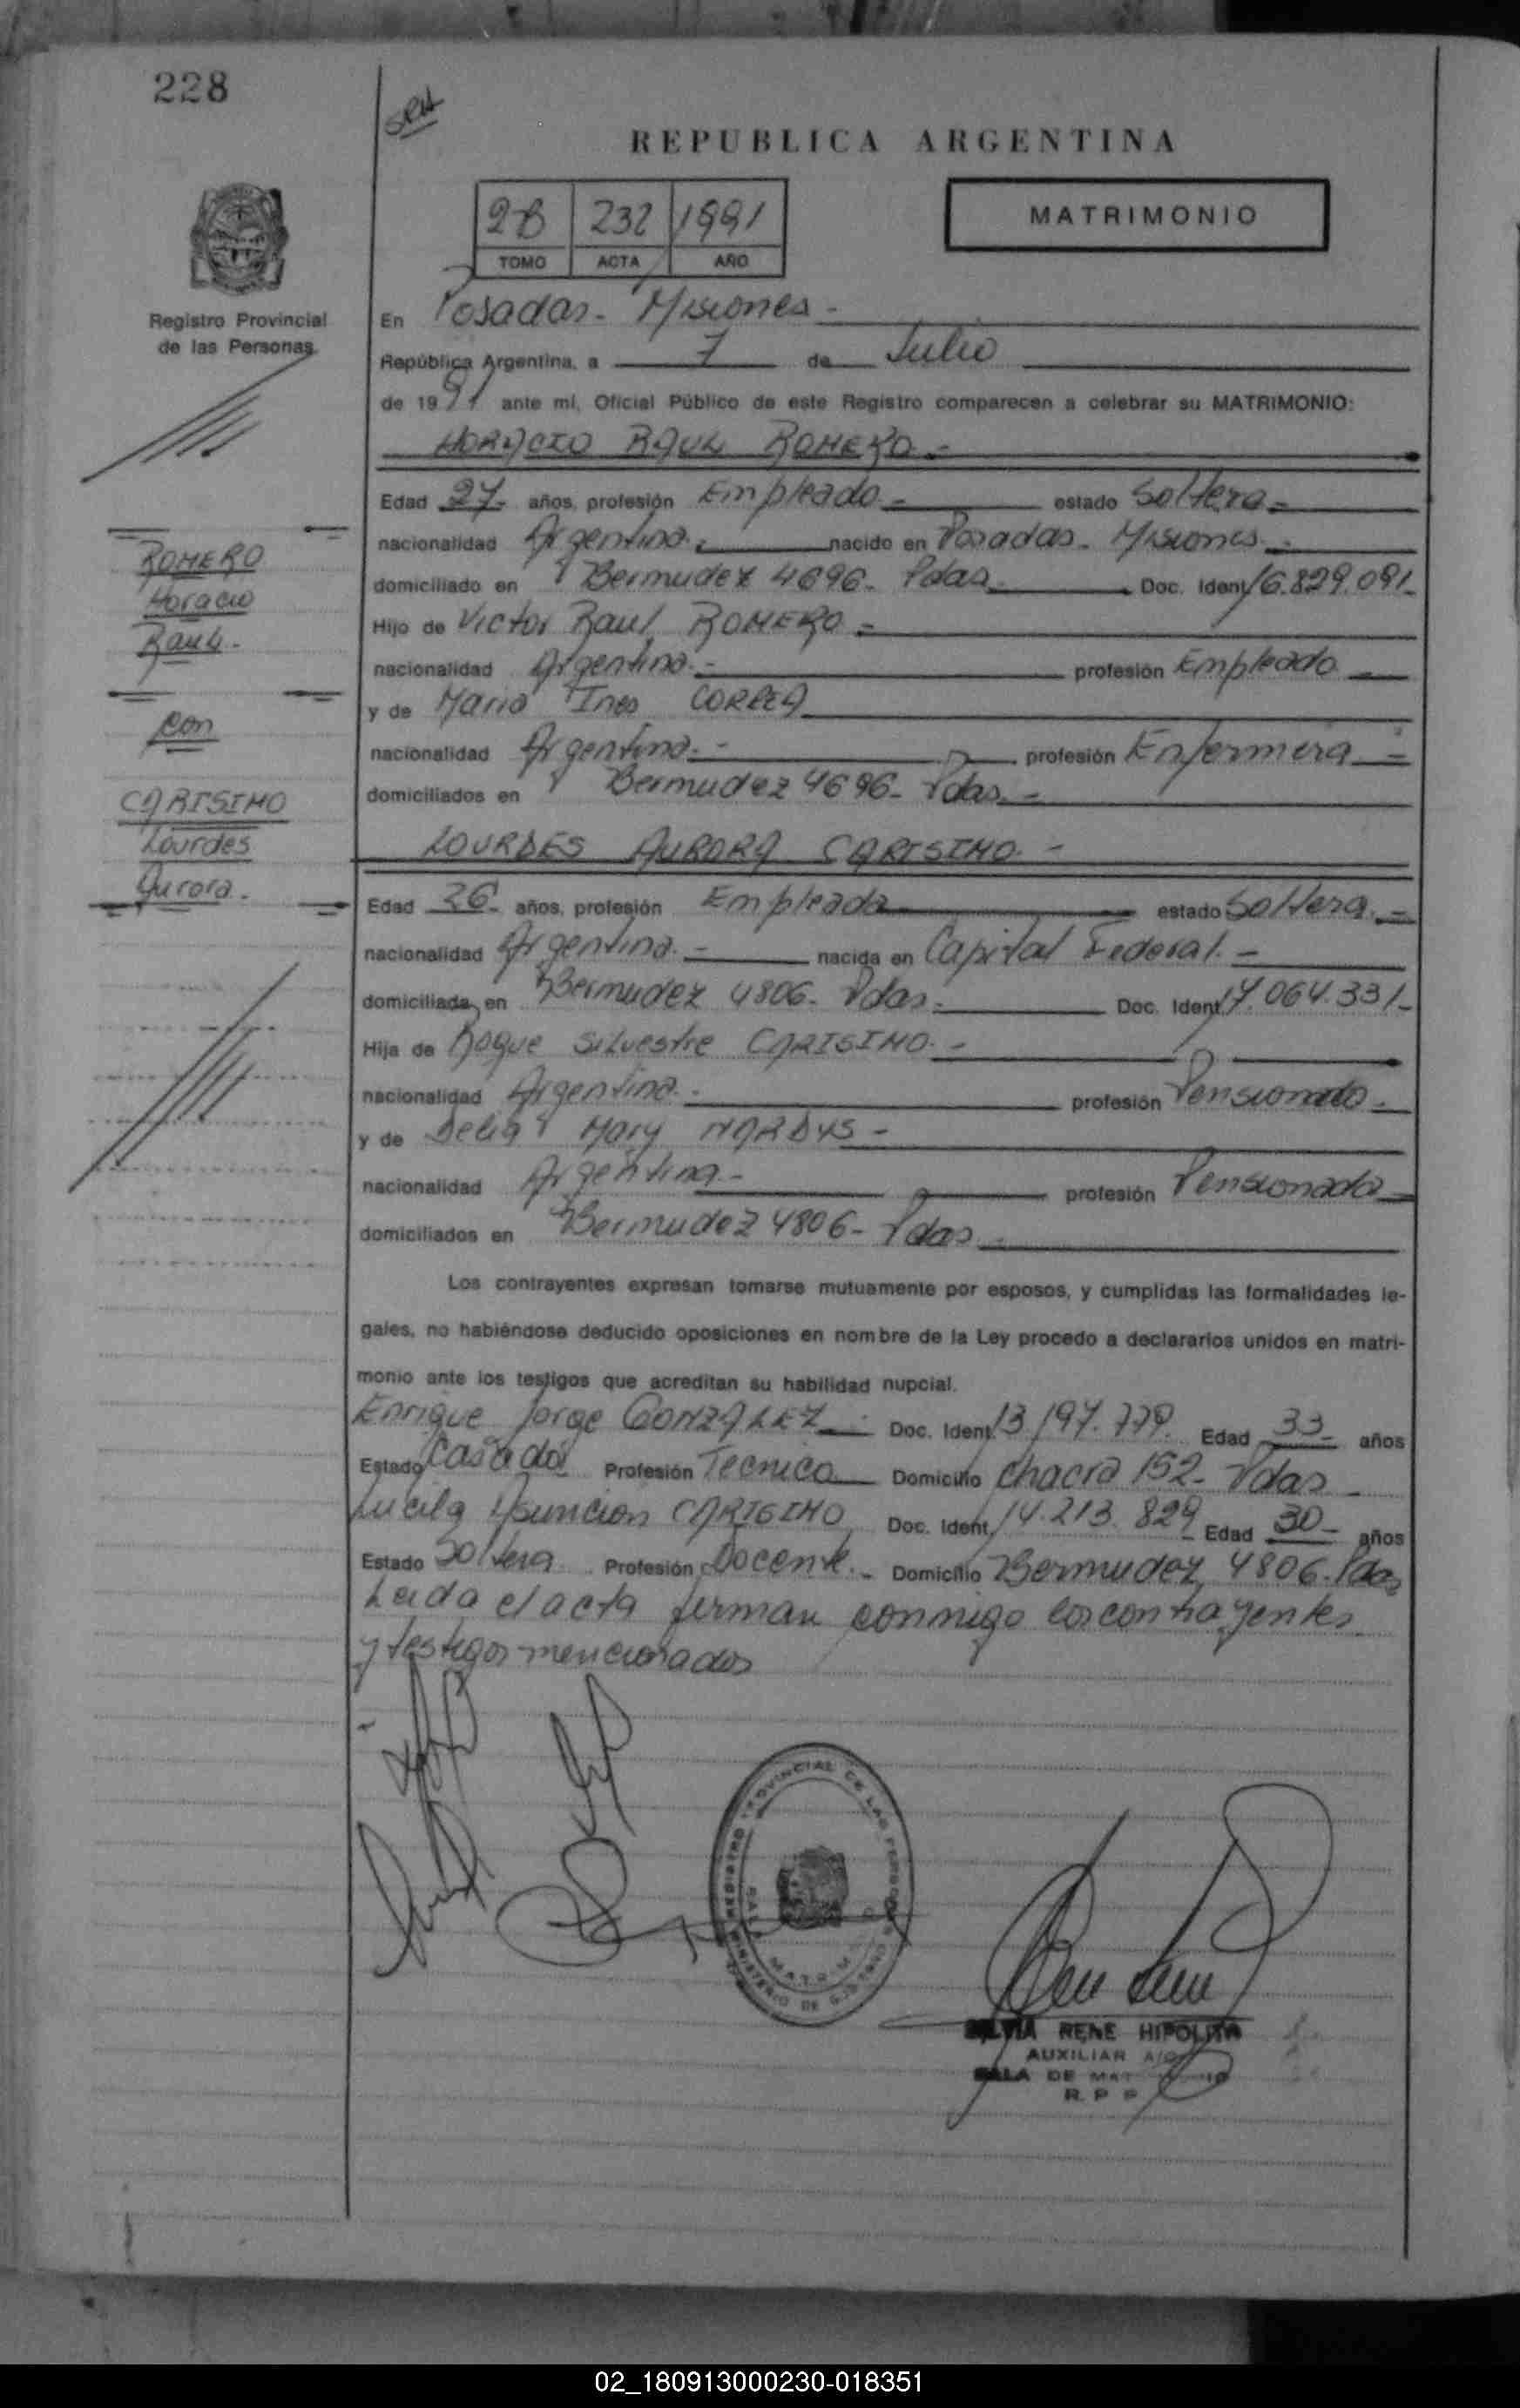 228
SRH
REPUBLICA ARGENTINA
2B 232 1991
TOMO ACTA AÑO
MATRIMONIO
Registro Provincial
de las Personas
En Posadas - Misiones -
República Argentina, a 7 de Julio
de 1991 ante mí, Oficial Público de este Registro comparecen a celebrar su MATRIMONIO:
HORACIO RAUL ROMERO -
Edad 27- años, profesión Empleado - estado Soltera -
nacionalidad Argentina - nacido en Posadas - Misiones -
domiciliado en Bermudez 4696 - Pdas Doc. Ident 16.829.091-
Hijo de Victor Raul ROMERO -
nacionalidad Argentina - profesión Empleado
y de Maria Ines CORREA
nacionalidad Argentina - profesión Enfermera -
domiciliados en Bermudez 4696 - Pdas -
LOURDES AURORA CARISIMO -
Edad 26- años, profesión Empleada estado Soltera -
nacionalidad Argentina - nacida en Capital Federal -
domiciliada en Bermudez 4806 - Pdas - Doc. Ident 17.064.331-
Hija de Roque Silvestre CARISIMO -
nacionalidad Argentina - profesión Pensionado -
y de Delia Mary NARDYS -
nacionalidad Argentina - profesión Pensionada
domiciliados en Bermudez 4806 - Pdas -
Los contrayentes expresan tomarse mutuamente por esposos, y cumplidas las formalidades le-
gales, no habiéndose deducido oposiciones en nombre de la Ley procedo a declararlos unidos en matri-
monio ante los testigos que acreditan su habilidad nupcial.
Enrique Jorge GONZALEZ Doc. Ident. 13.197.779. Edad 33- años
Estado Casado Profesión Tecnico Domicilio Chacra 152- Pdas
Lucila Asuncion CARISIMO Doc. Ident. 14.213.829 Edad 30- años
Estado Soltera Profesión Docente - Domicilio Bermudez 4806. Pdas
Leida el acta firman conmigo los contrayentes
y testigos mencionados
ROMERO
Horacio
Raul -
con
CARISIMO
Lourdes
Aurora -
SILVIA RENE HIPOLITA
AUXILIAR
SALA DE
R. P. P
02_180913000230-018351